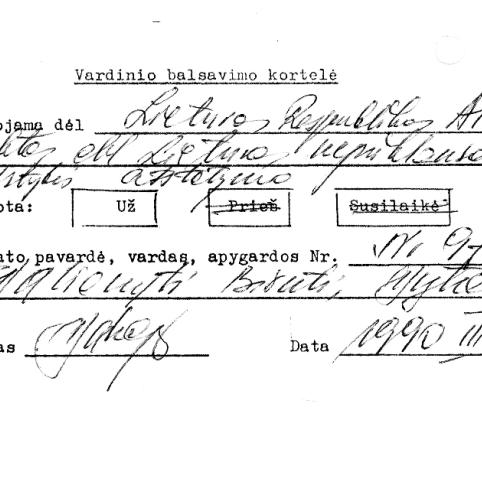 Vardinio balsavimo kortelė
ojama dėl Lietuvos Respublikos A
dėl Lietuvos nepriklauso
atstatymo
ota: Už Prieš Susilaikė
ato pavardė, vardas, apygardos Nr. Nr 97
Birutė,
as
Data 1990 III